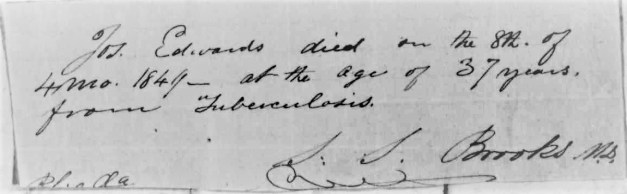 Jos. Edwards died on the 8th. of
4 mo. 1849 - at the age of 37 years.
from Tuberculosis.
S. S. Brooks M.D.
Philada